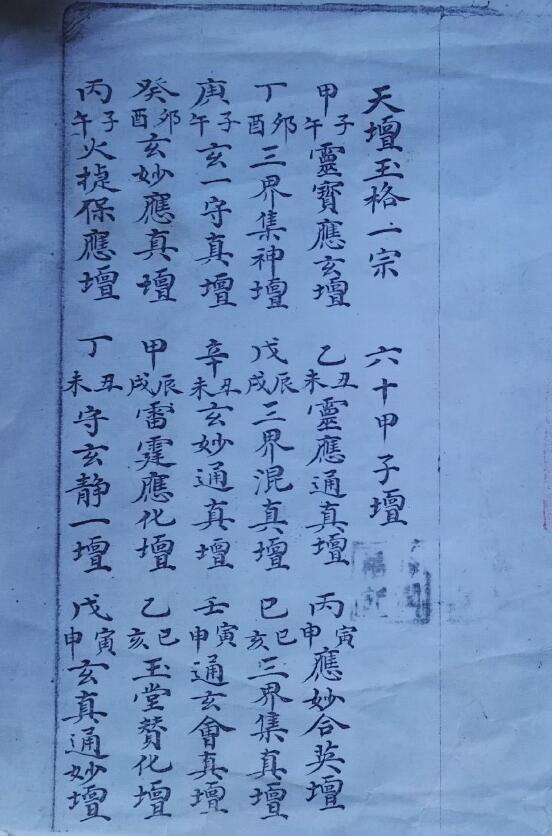 天壇玉格一宗 六十甲子壇
甲子午靈寶應玄壇 乙丑未靈應通真壇 丙寅申應妙合英壇
丁卯酉三界集神壇 戊辰戌三界混真壇 己巳亥三界集真壇
庚子午玄一守真壇 辛丑未玄妙通真壇 壬寅申通玄會真壇
癸卯酉玄妙應真壇 甲辰戌雷霆應化壇 乙巳亥玉堂贊化壇
丙子午火捷保應壇 丁丑未守玄靜一壇 戊寅申玄真通妙壇